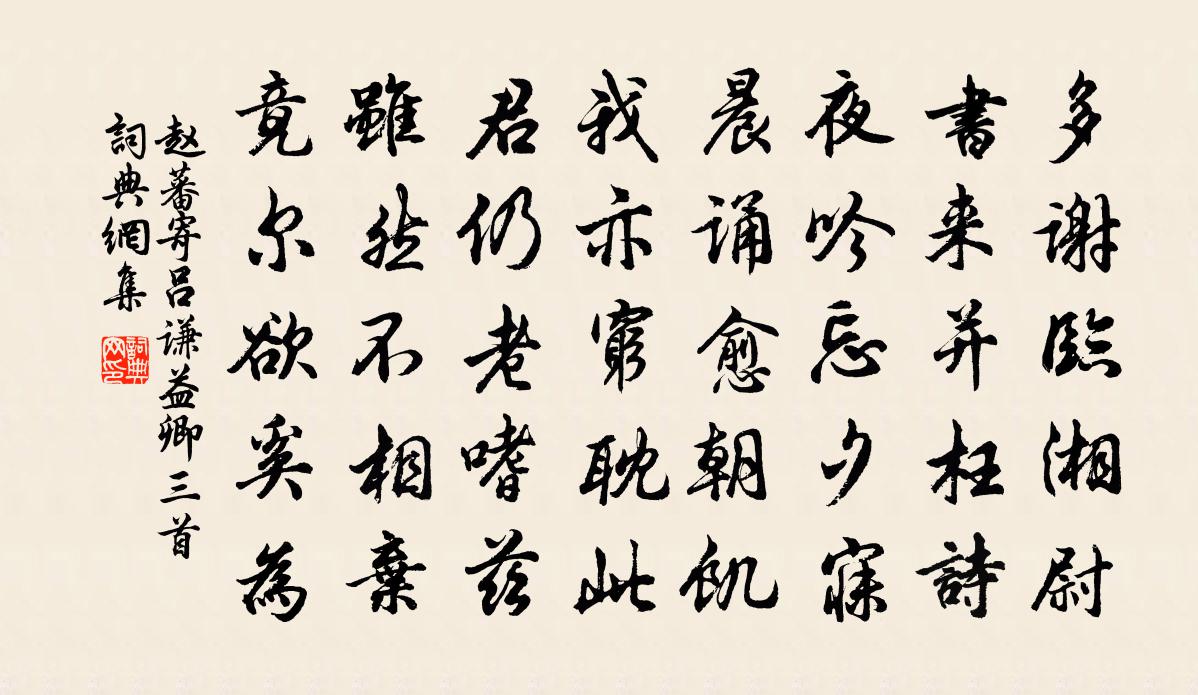 多谢臨湘尉
書来并枉詩
夜吟忘夕寐
晨诵愈朝飢
我亦窮耽此
君仍老嗜兹
雖然不相棄
竟尔欲奚為
赵蕃寄吕谦益卿三首
詞典網集
詞典网印